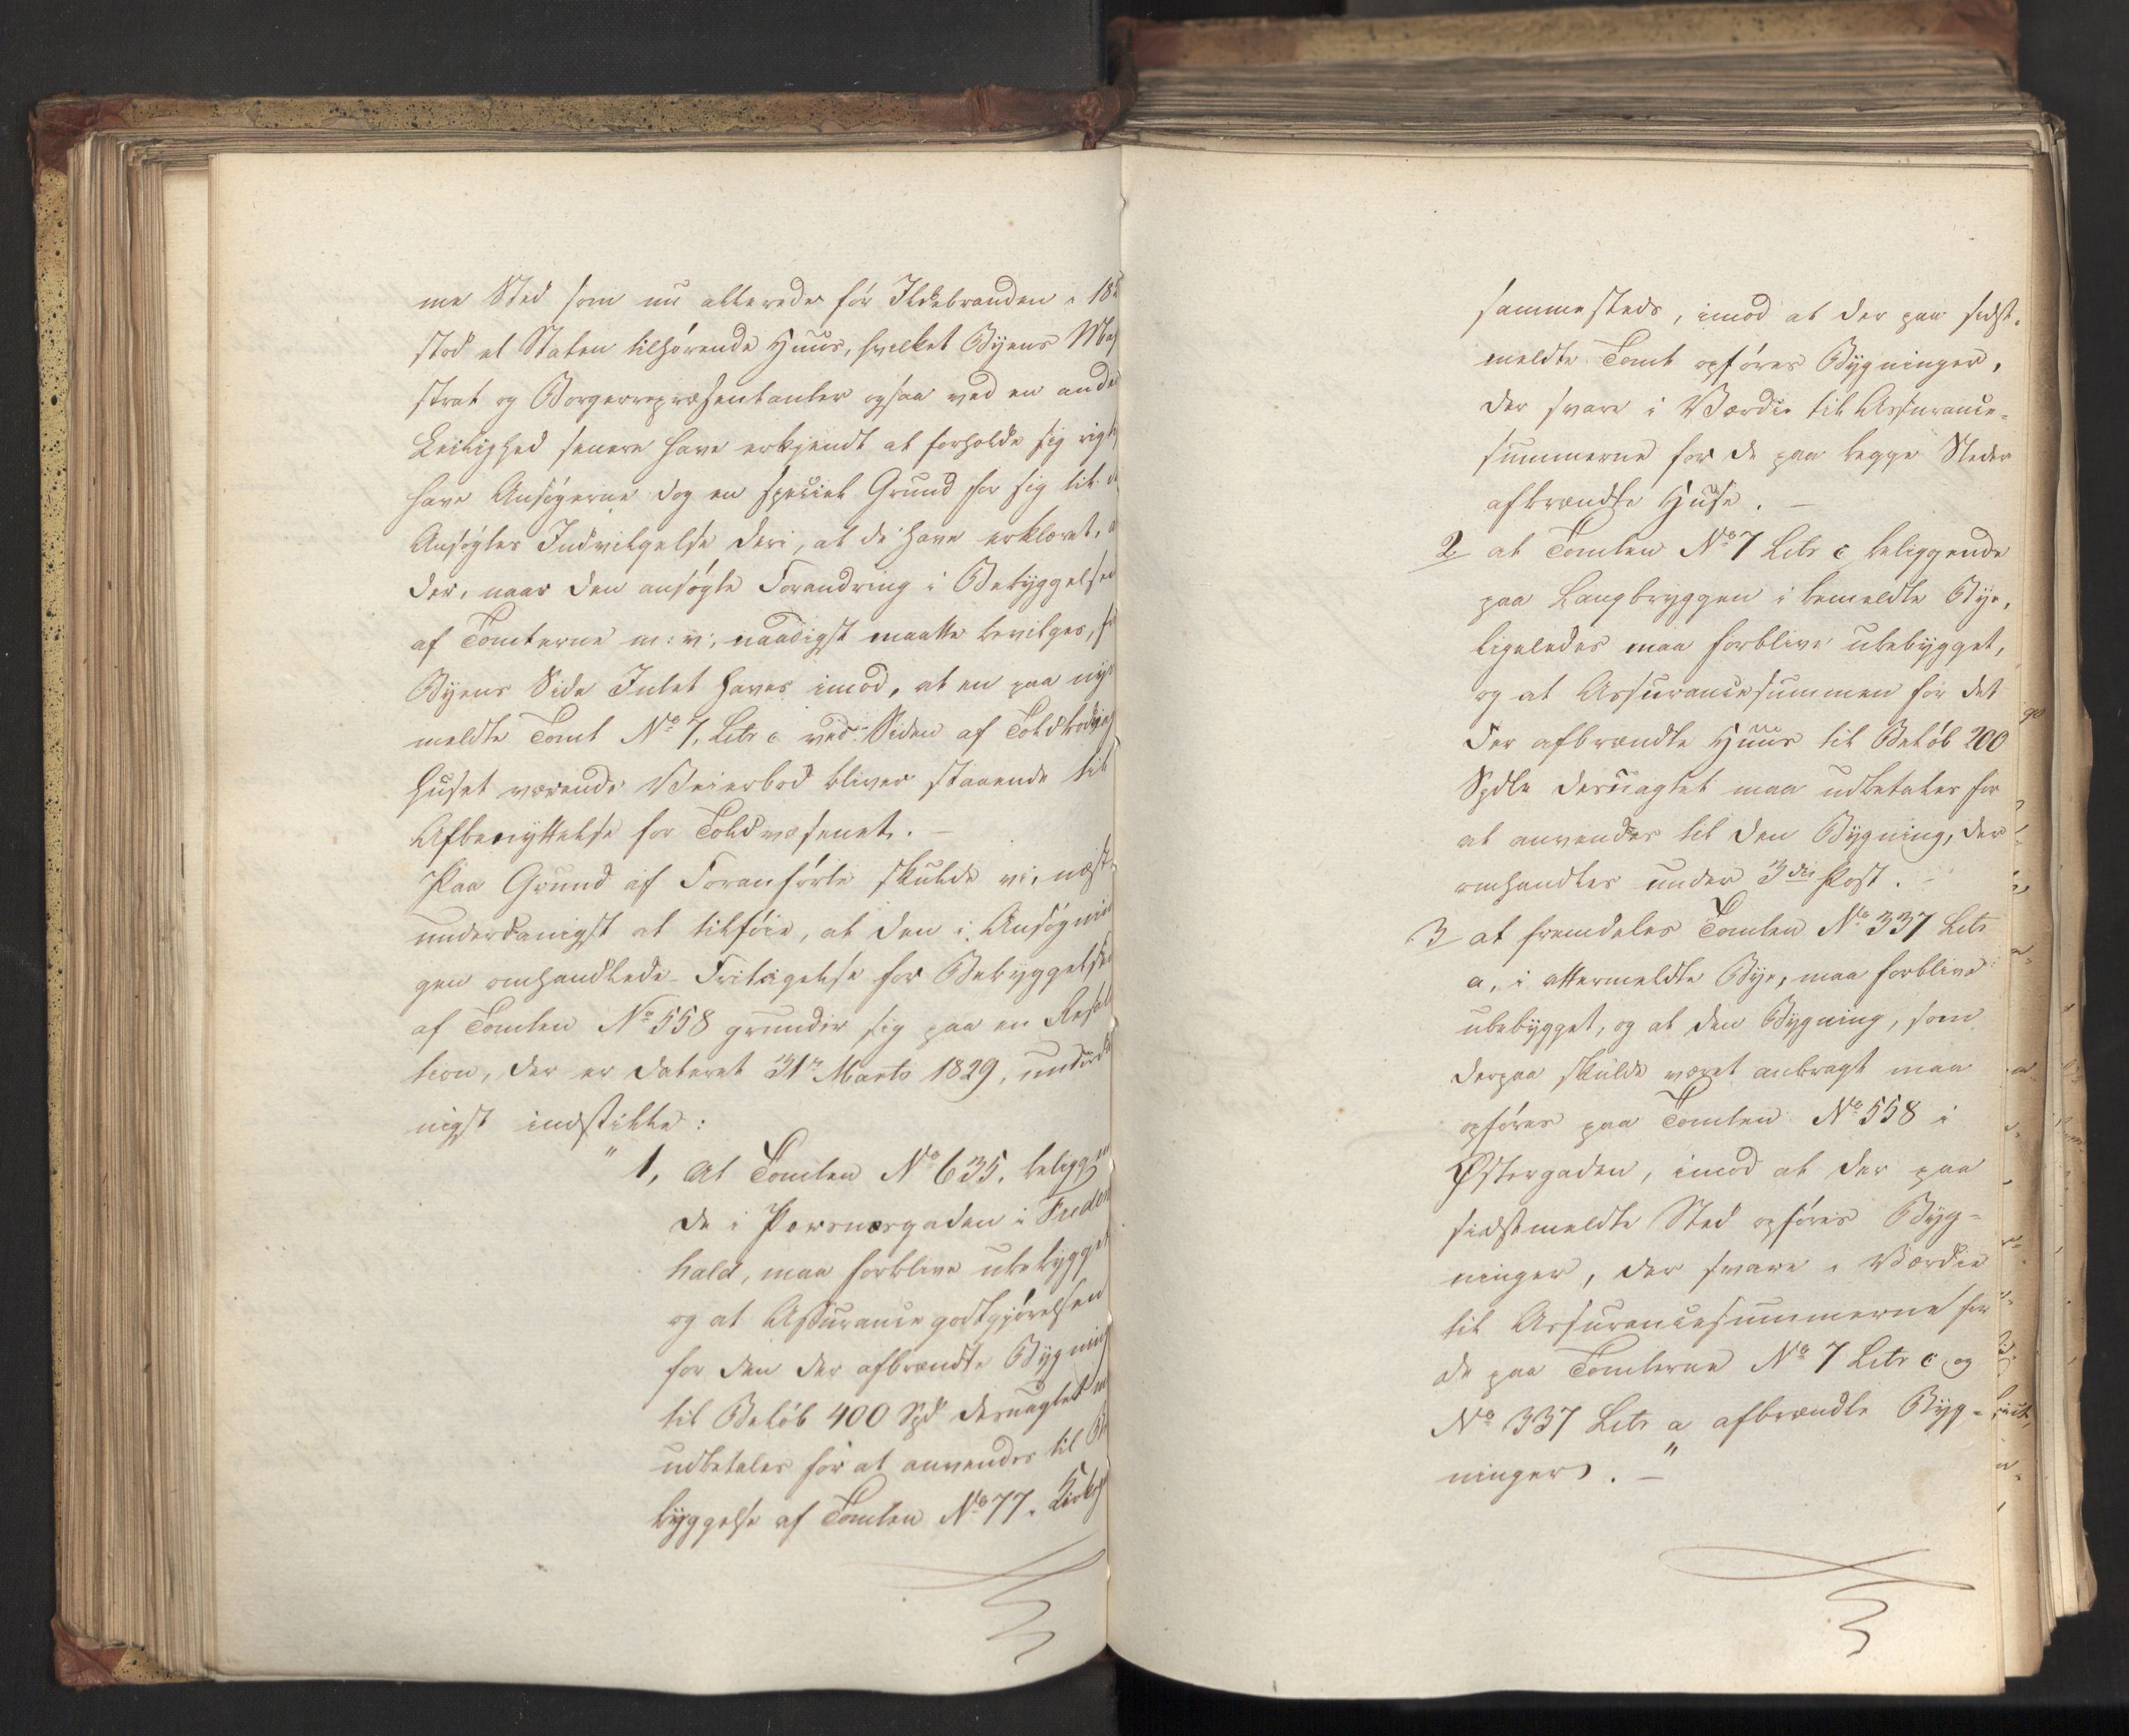 me Sted som nu allerede før Ildebranden i 18
stod et Staten tilhørende Huus, hvilket Byens Mag
strat og Borgerrepræsentanter ogsaa ved en ande
Leilighed senere have erkjendt at forholde sig rigt
have Ansøgerne dog en speciel Grund for sig til d
Ansøgtes Indvilgelse deri, at de have erklæret, a
der, naar den ansøgte Forandring i Bebyggelsen
af Tomterne m: v: naadigst maatte bevilges, f
Byens Side Intet haves imod, at en paa nys
meldte Tomt No 7, Litr c ved Siden af Toldbod
huset værende Veierbod bliver staaende til
Afbenyttelse for Toldvæsenet. –
Paa Grund af Foranførte skulde vi, næst
underdanigst at tilføie, at den i Ansøgnin
gen omhandlede Fritagelse for Bebyggelse
af Tomten No 558 grunder sig paa en Resol
tion, der er dateret 31te Marts 1829, underda
nigst indstille:
" 1, At Tomten No 635, beliggen
de i Porsnesgaden i Freder
hald, maa forblive ubebygget
og at Assurancegodtgjørelsen
for den der afbrændte Bygning
til Beløb 400 Spd desuagtet m
udbetales for at anvendes til Be
byggelse af Tomten No 77.
sammesteds, imod at der paa sidst-
meldte Tomt opføres Bygninger,
der svare i Værdie til Assurance-
summerne for de paa begge Steder
afbrændte Huse. –
2 at Tomten No 7 Litr c beliggende
paa Langbryggen i bemeldte Bye,
ligeledes maa forblive ubebygget,
og at Assurancesummen for det
der afbrændte Huus til Beløb 200
Spdlr desuagtet maa udbetales for
at anvendes til den Bygning, der
omhandles under 3die Post. –
3 at fremdeles Tomten No 337 Litr
a, i ottermeldte Bye, maa forblive
ubebygget, og at den Bygning, som
derpaa skulde været anbragt maa
opføres paa Tomten No 558 i
Østergaden, imod at der paa
sidstmeldte Sted opføres Byg-
ninger, der svare i Værdie
til Assurancesummerne for
de paa Tomterne No 7 Litr c og
No 337 Litr a afbrændte Byg-
ninger. – "